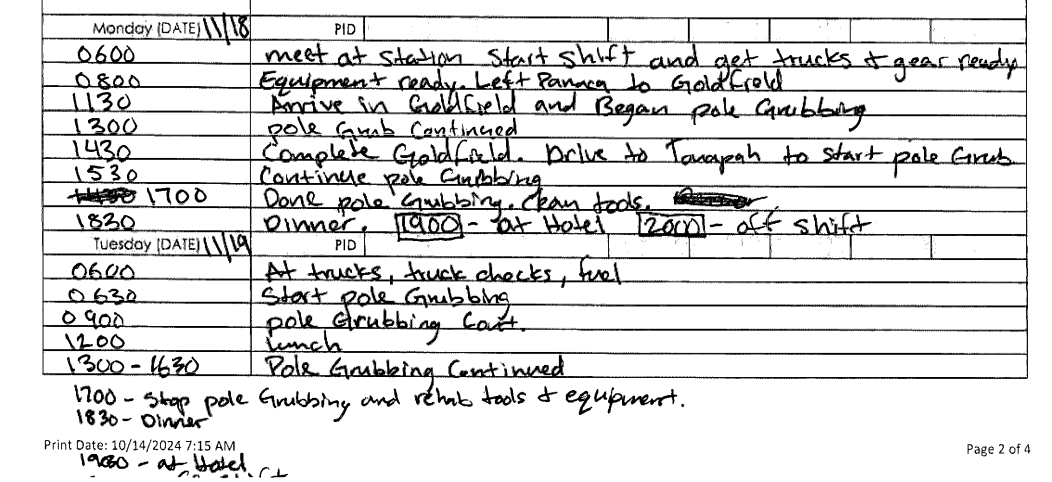 Monday (DATE) 11/18 PID
0600 meet at Station Start Shift and get trucks & gear ready
0800 Equipment ready. Left Panaca to Goldfield
1130 Arrive in Goldfield and Began pole Grubbing
1300 pole Grub Continued
1430 Complete Goldfield. Drive to Tonapah to Start pole Grub
1530 Continue pole Grubbing
1700 Done pole Grubbing. Clean tools.
1830 Dinner. 1900 - at Hotel 2000 - off shift
Tuesday (DATE) 11/19 PID
0600 At trucks, truck checks, fuel
0630 Start pole Grubbing
0900 pole Grubbing Cont.
1200 Lunch
1300 - 1630 Pole Grubbing Continued
1700 - Stop pole Grubbing and rehab tools & equipment.
1830 - Dinner
Print Date: 10/14/2024 7:15 AM Page 2 of 4
1900 - at Hotel